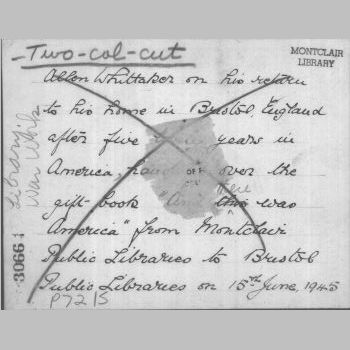 -Two-col-cut
MONTCLAIR
LIBRARY
Allen Whittaker on his return
to his home in Bristol, England
after five years in
America, over the
gift-book "And this was
America" from Montclair
Public Libraries to Bristol
Public Libraries on 15th June, 1945
P7215
Library
War Work
30661